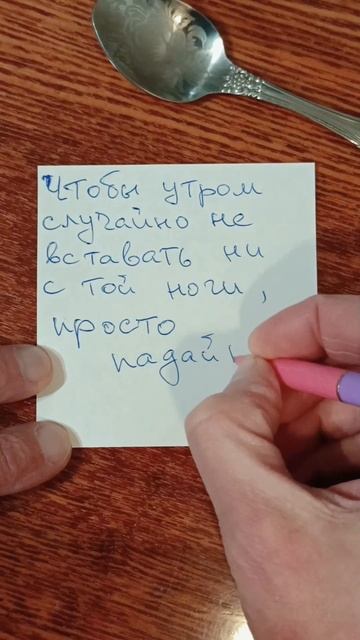 Чтобы утром
случайно не
вставать ни
с той ноги,
просто
падай